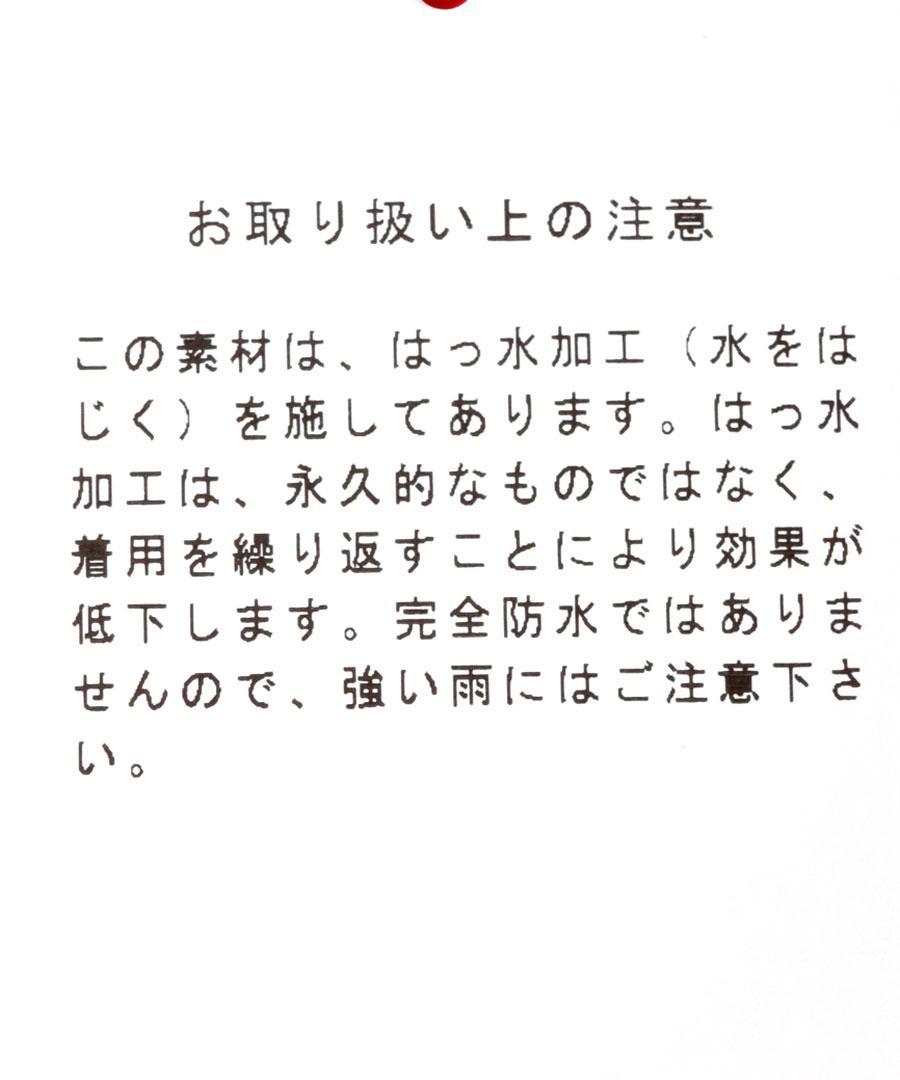 お取り扱い上の注意
この素材は、はっ水加工（水をは
じく）を施してあります。はっ水
加工は、永久的なものではなく、
着用を繰り返すことにより効果が
低下します。完全防水ではありま
せんので、強い雨にはご注意下さ
い。